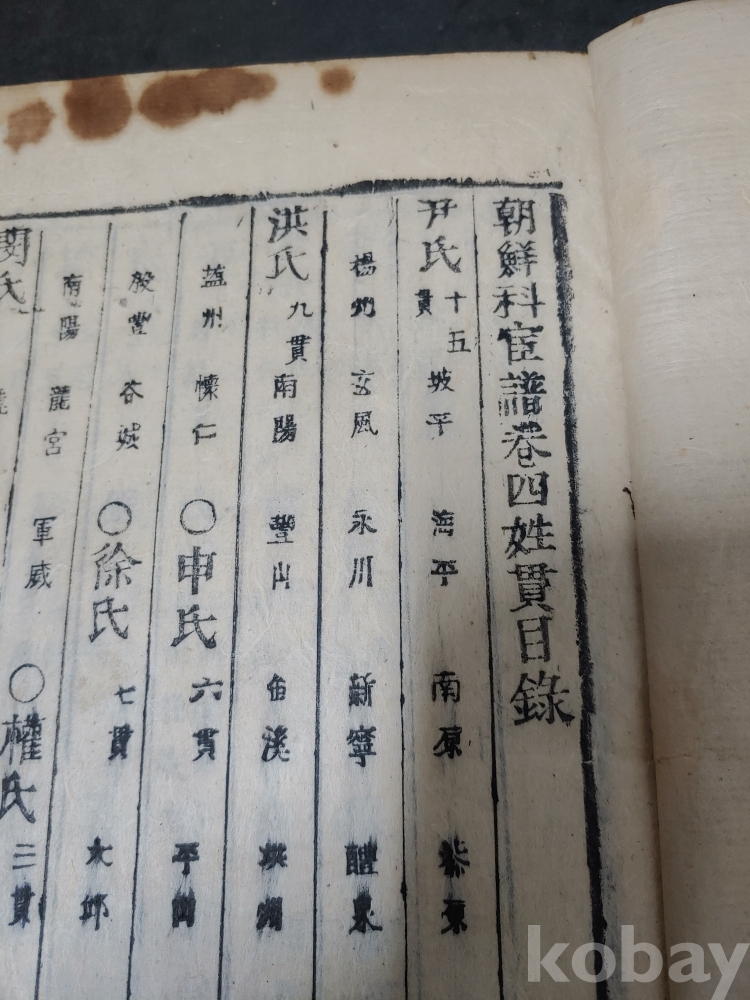 朝鮮科宦譜卷四姓貫目錄
尹氏 十五貫 坡平 海平 南原 柒原
楊州 玄風 永川 新寧 醴泉
洪氏 九貫 南陽 豐山 缶溪 洪州
懷仁 ○申氏 六貫 平山
殷豐 谷城 ○徐氏 七貫 大邱
南陽 軍威 ○權氏 三貫
閔氏
kobay